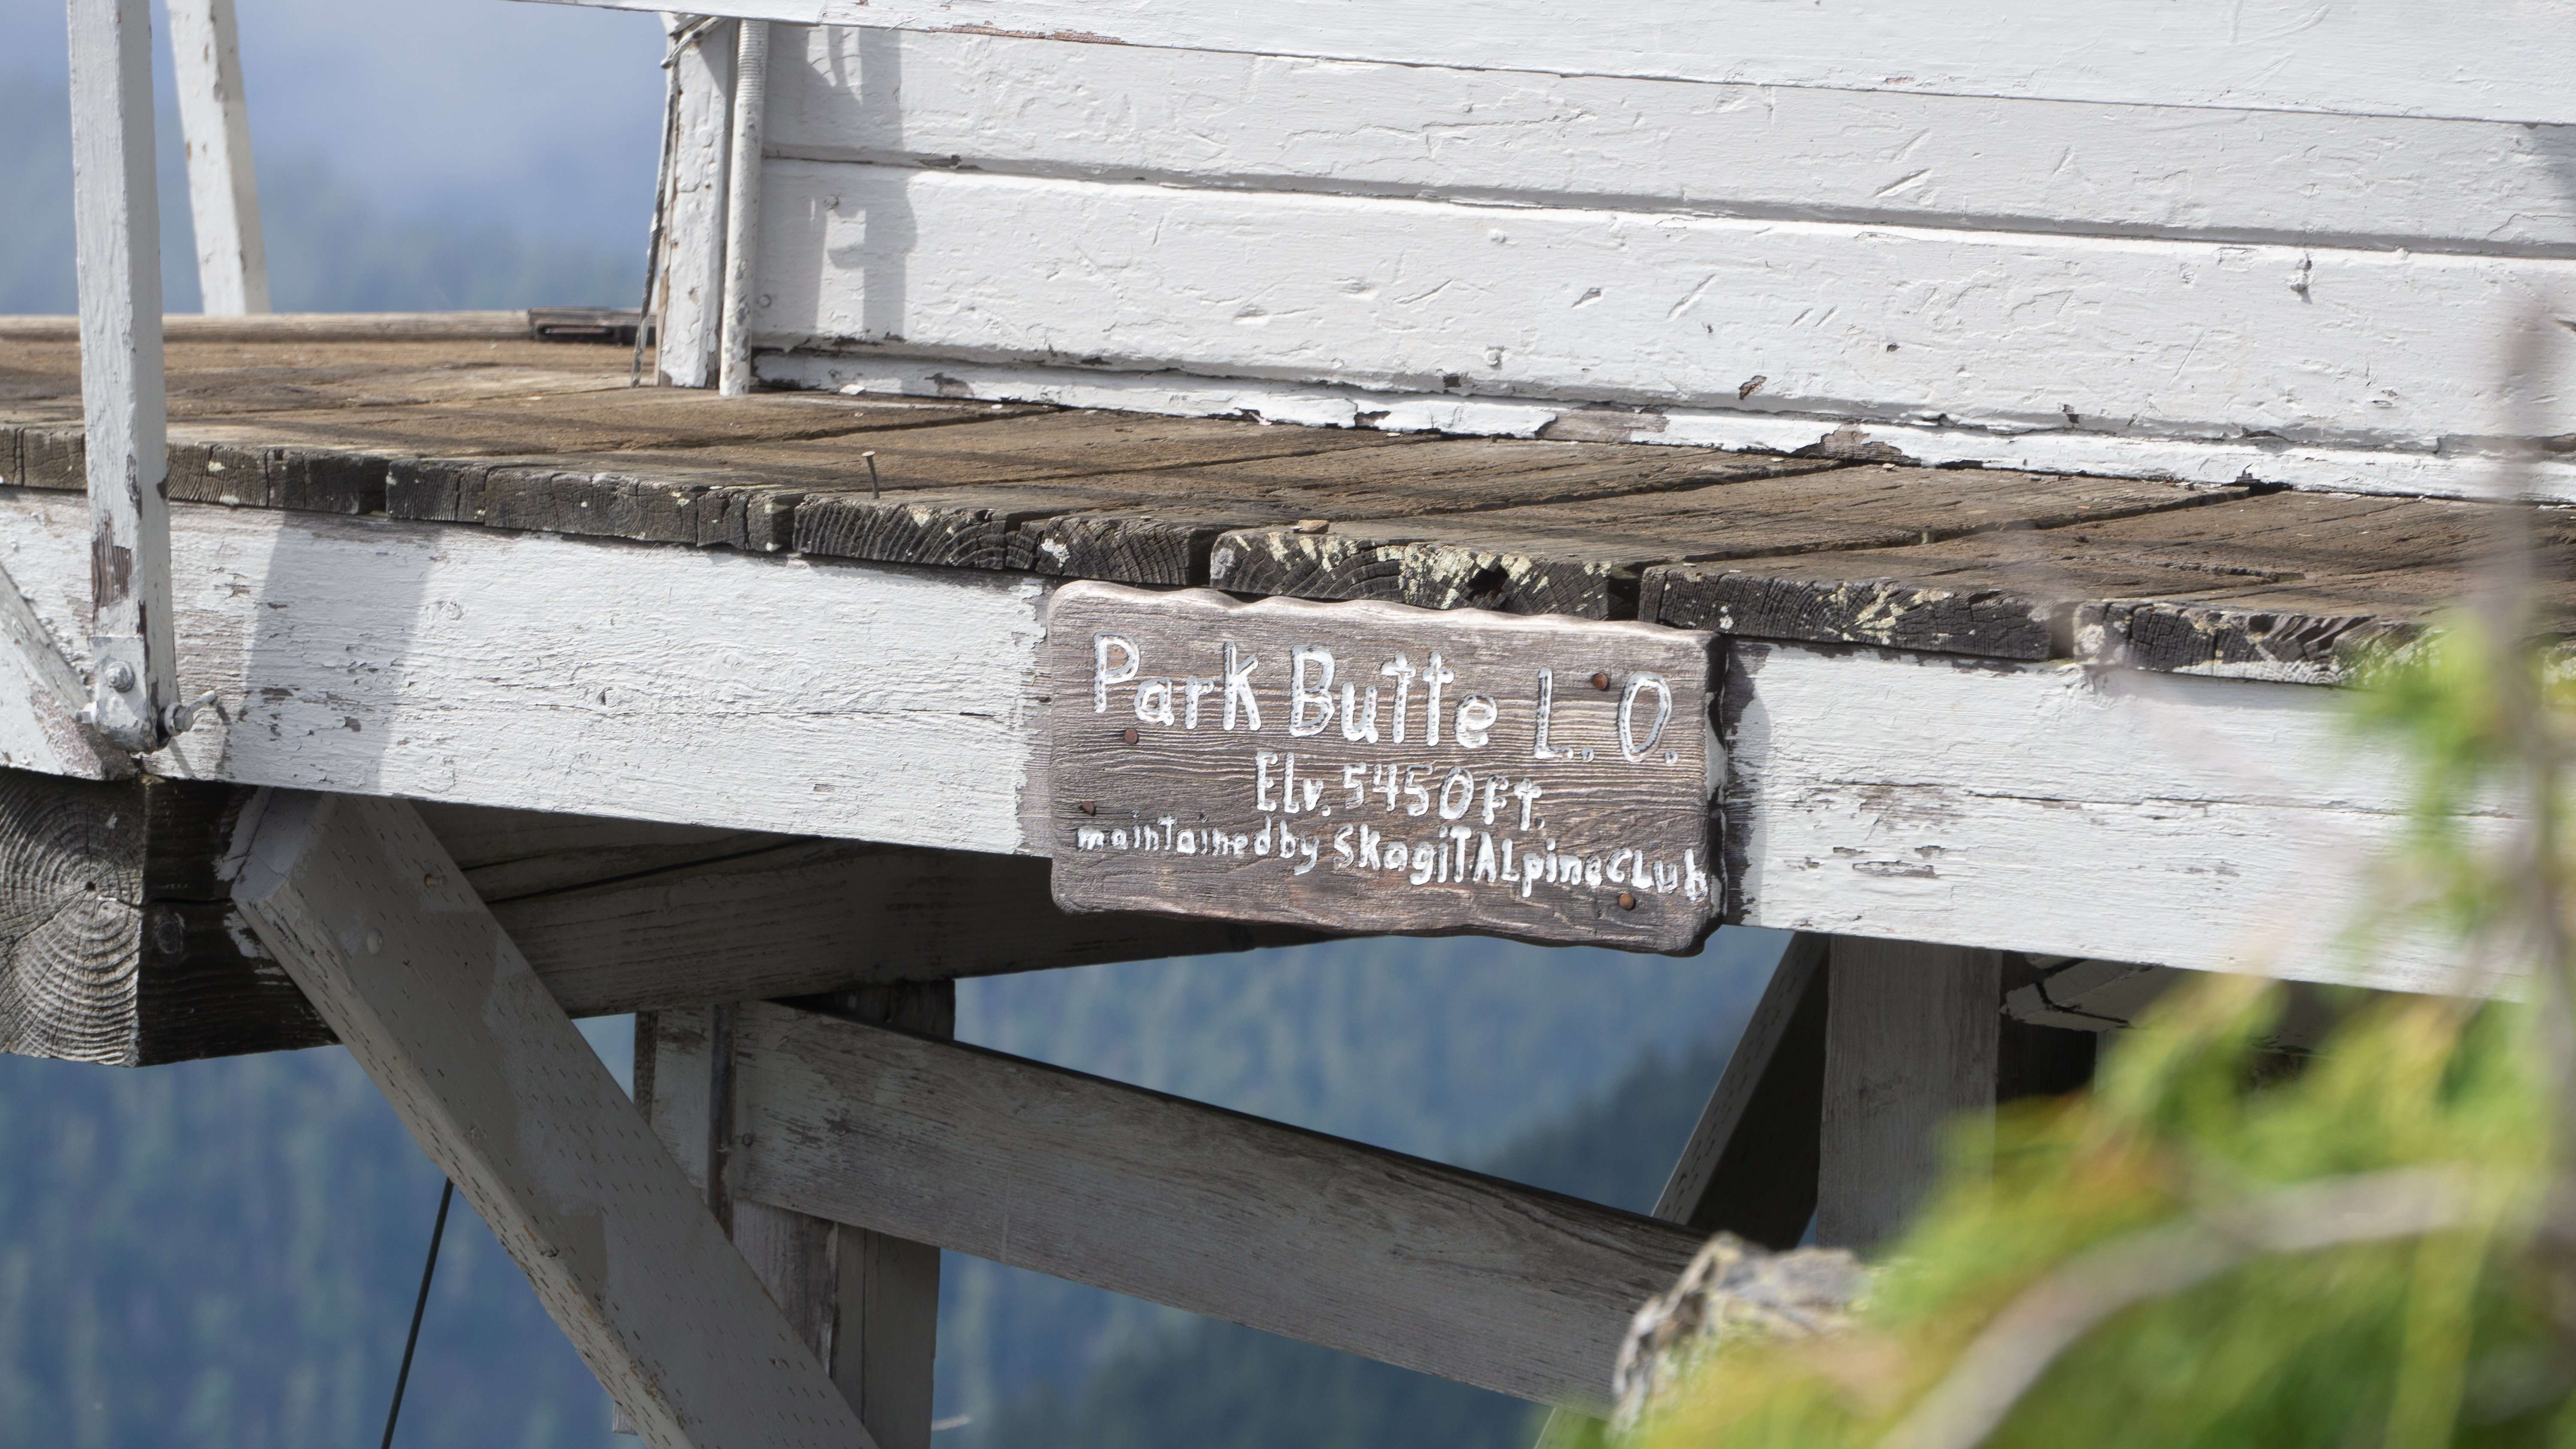 Park Butte L.O.
Elv. 5450 Ft.
maintained by SkagiT ALpine CLub